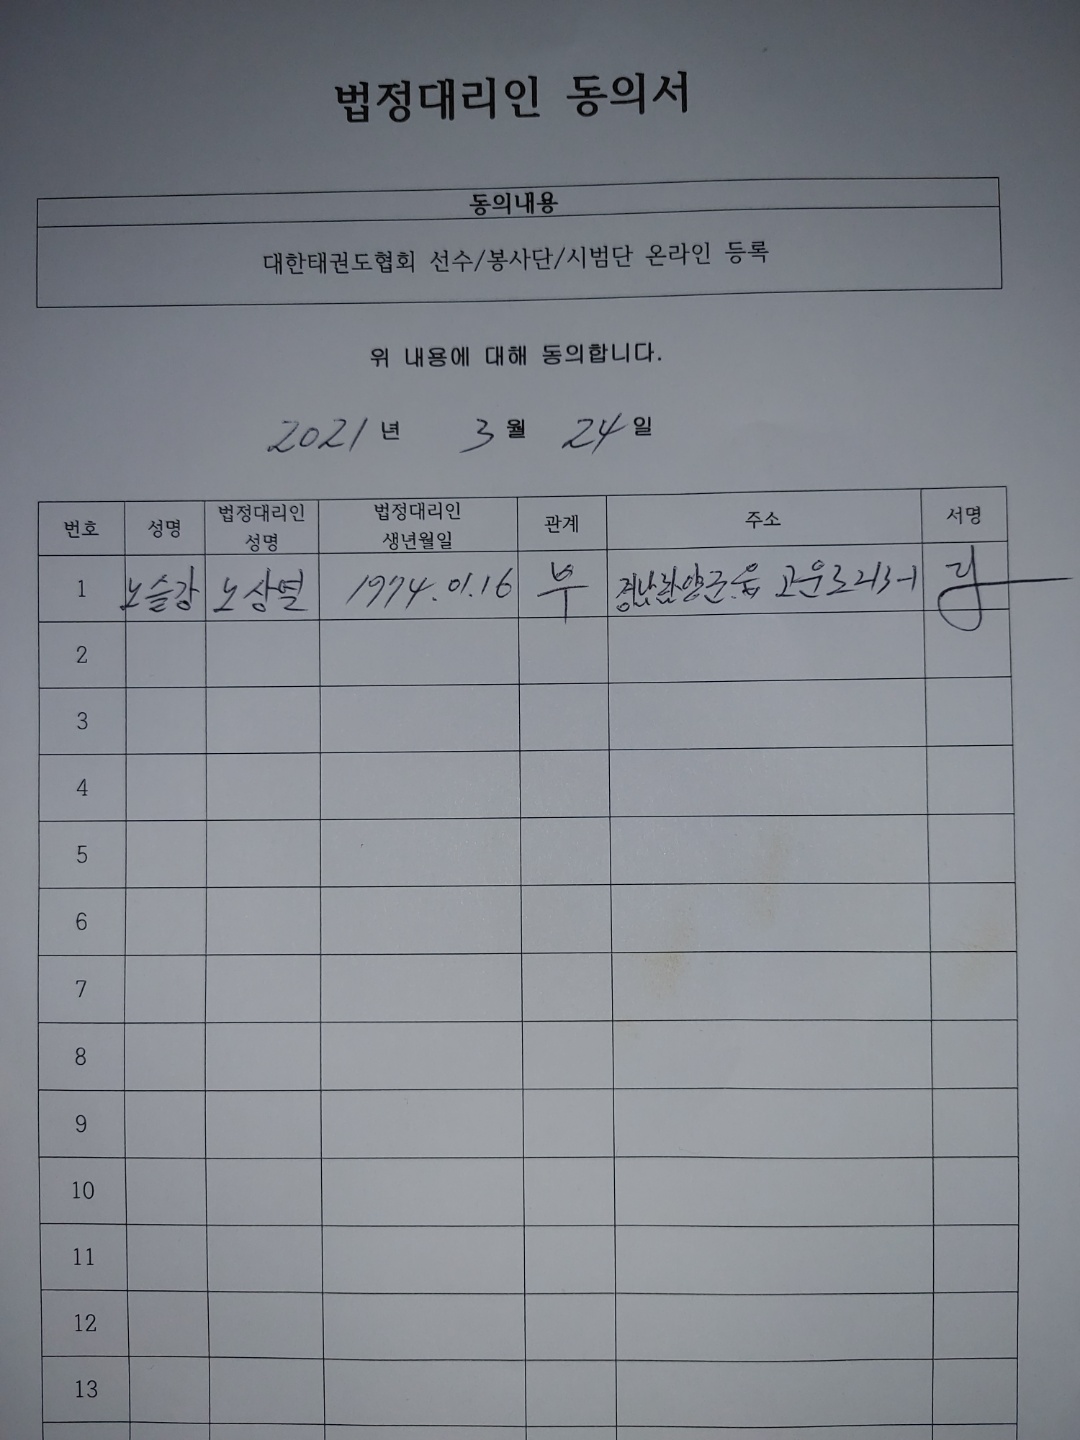 법정대리인 동의서
동의내용
대한태권도협회 선수/봉사단/시범단 온라인 등록
위 내용에 대해 동의합니다.
2021 년 3 월 24 일
번호 성명 법정대리인 성명 법정대리인 생년월일 관계 주소 서명
1 노슬강 노상열 1974.01.16 부 경남함양군.읍 고운로213-1
2
3
4
5
6
7
8
9
10
11
12
13